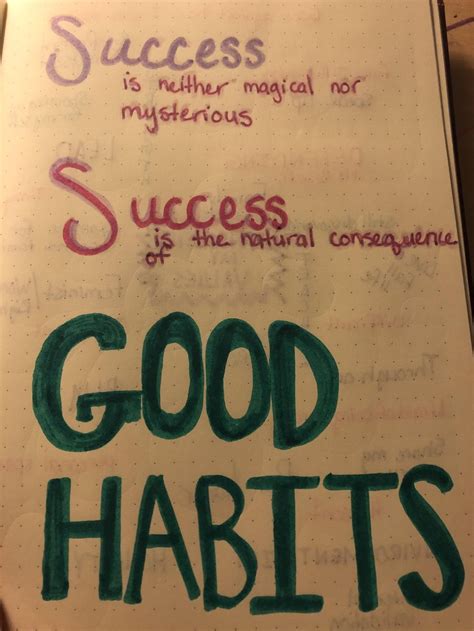 Success
is neither magical nor
mysterious
Success
is the natural consequence
of
GOOD
HABITS